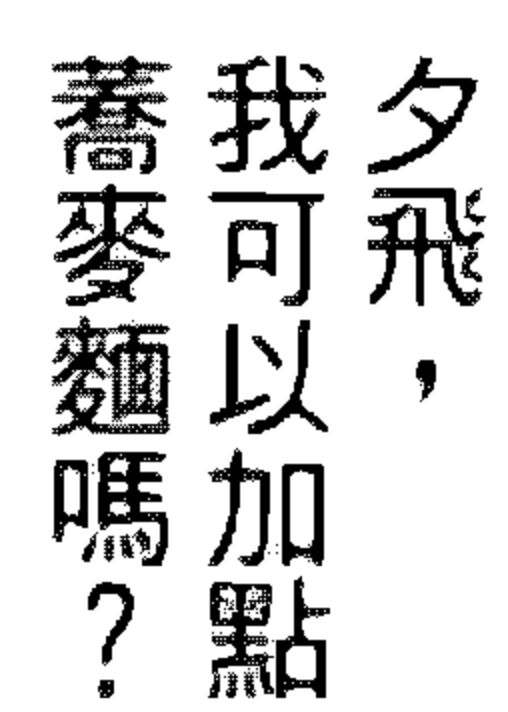 夕飛，
我可以加點
蕎麥麵嗎？